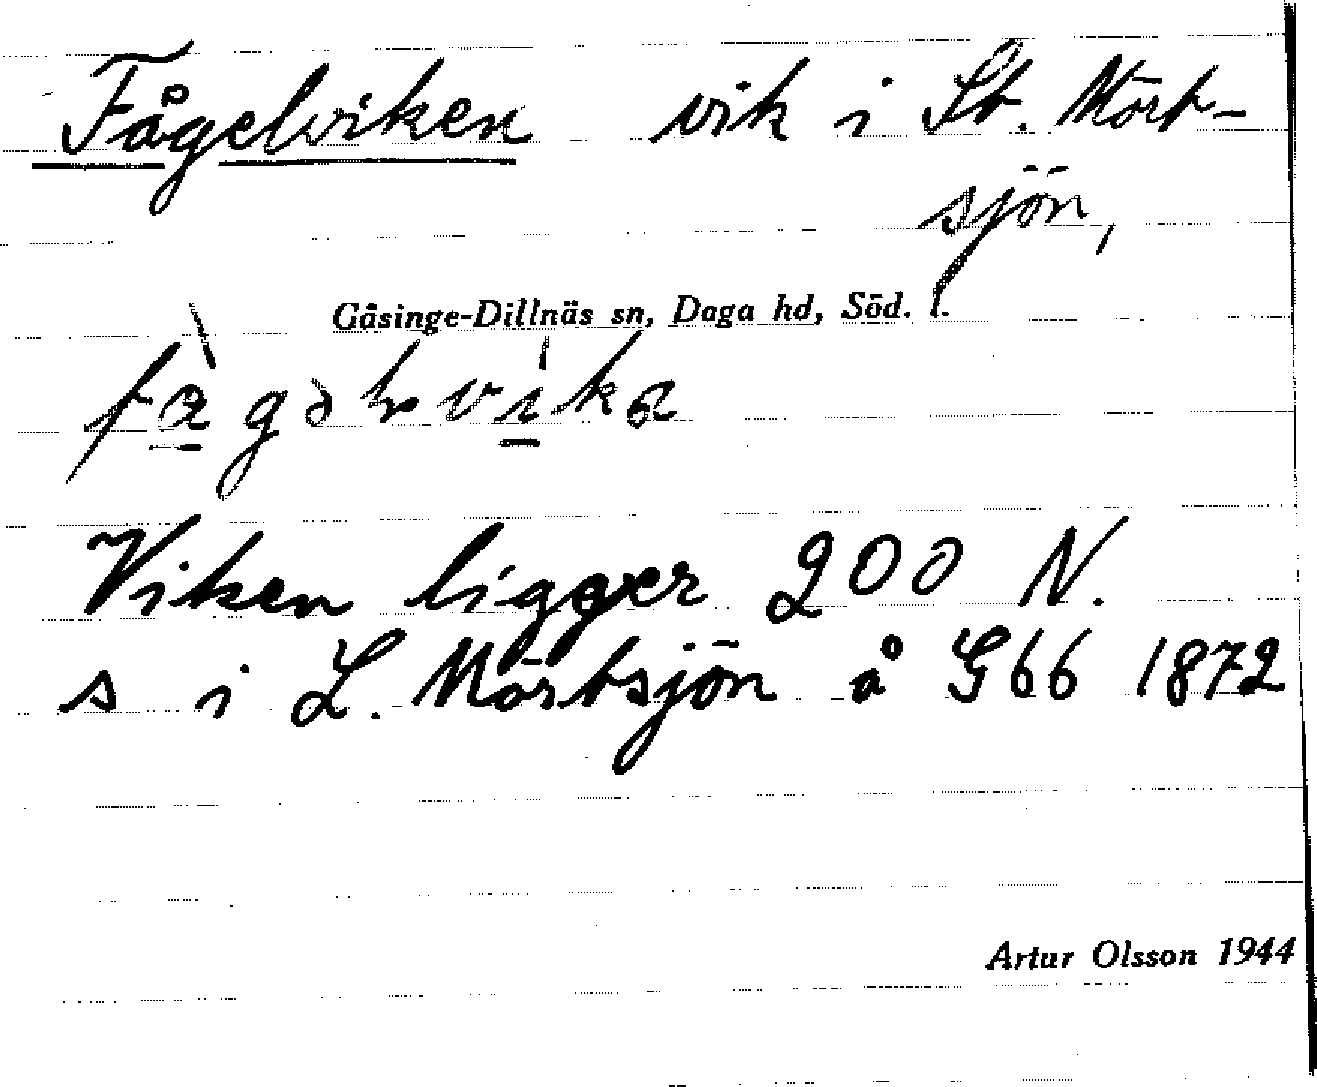 Fågelviken vik i St. Mört-
sjön,
Gåsinge-Dillnäs sn, Daga hd, Söd. l.
Viken ligger 200 N.
s i L. Mörtsjön å G66 1872
Artur Olsson 1944